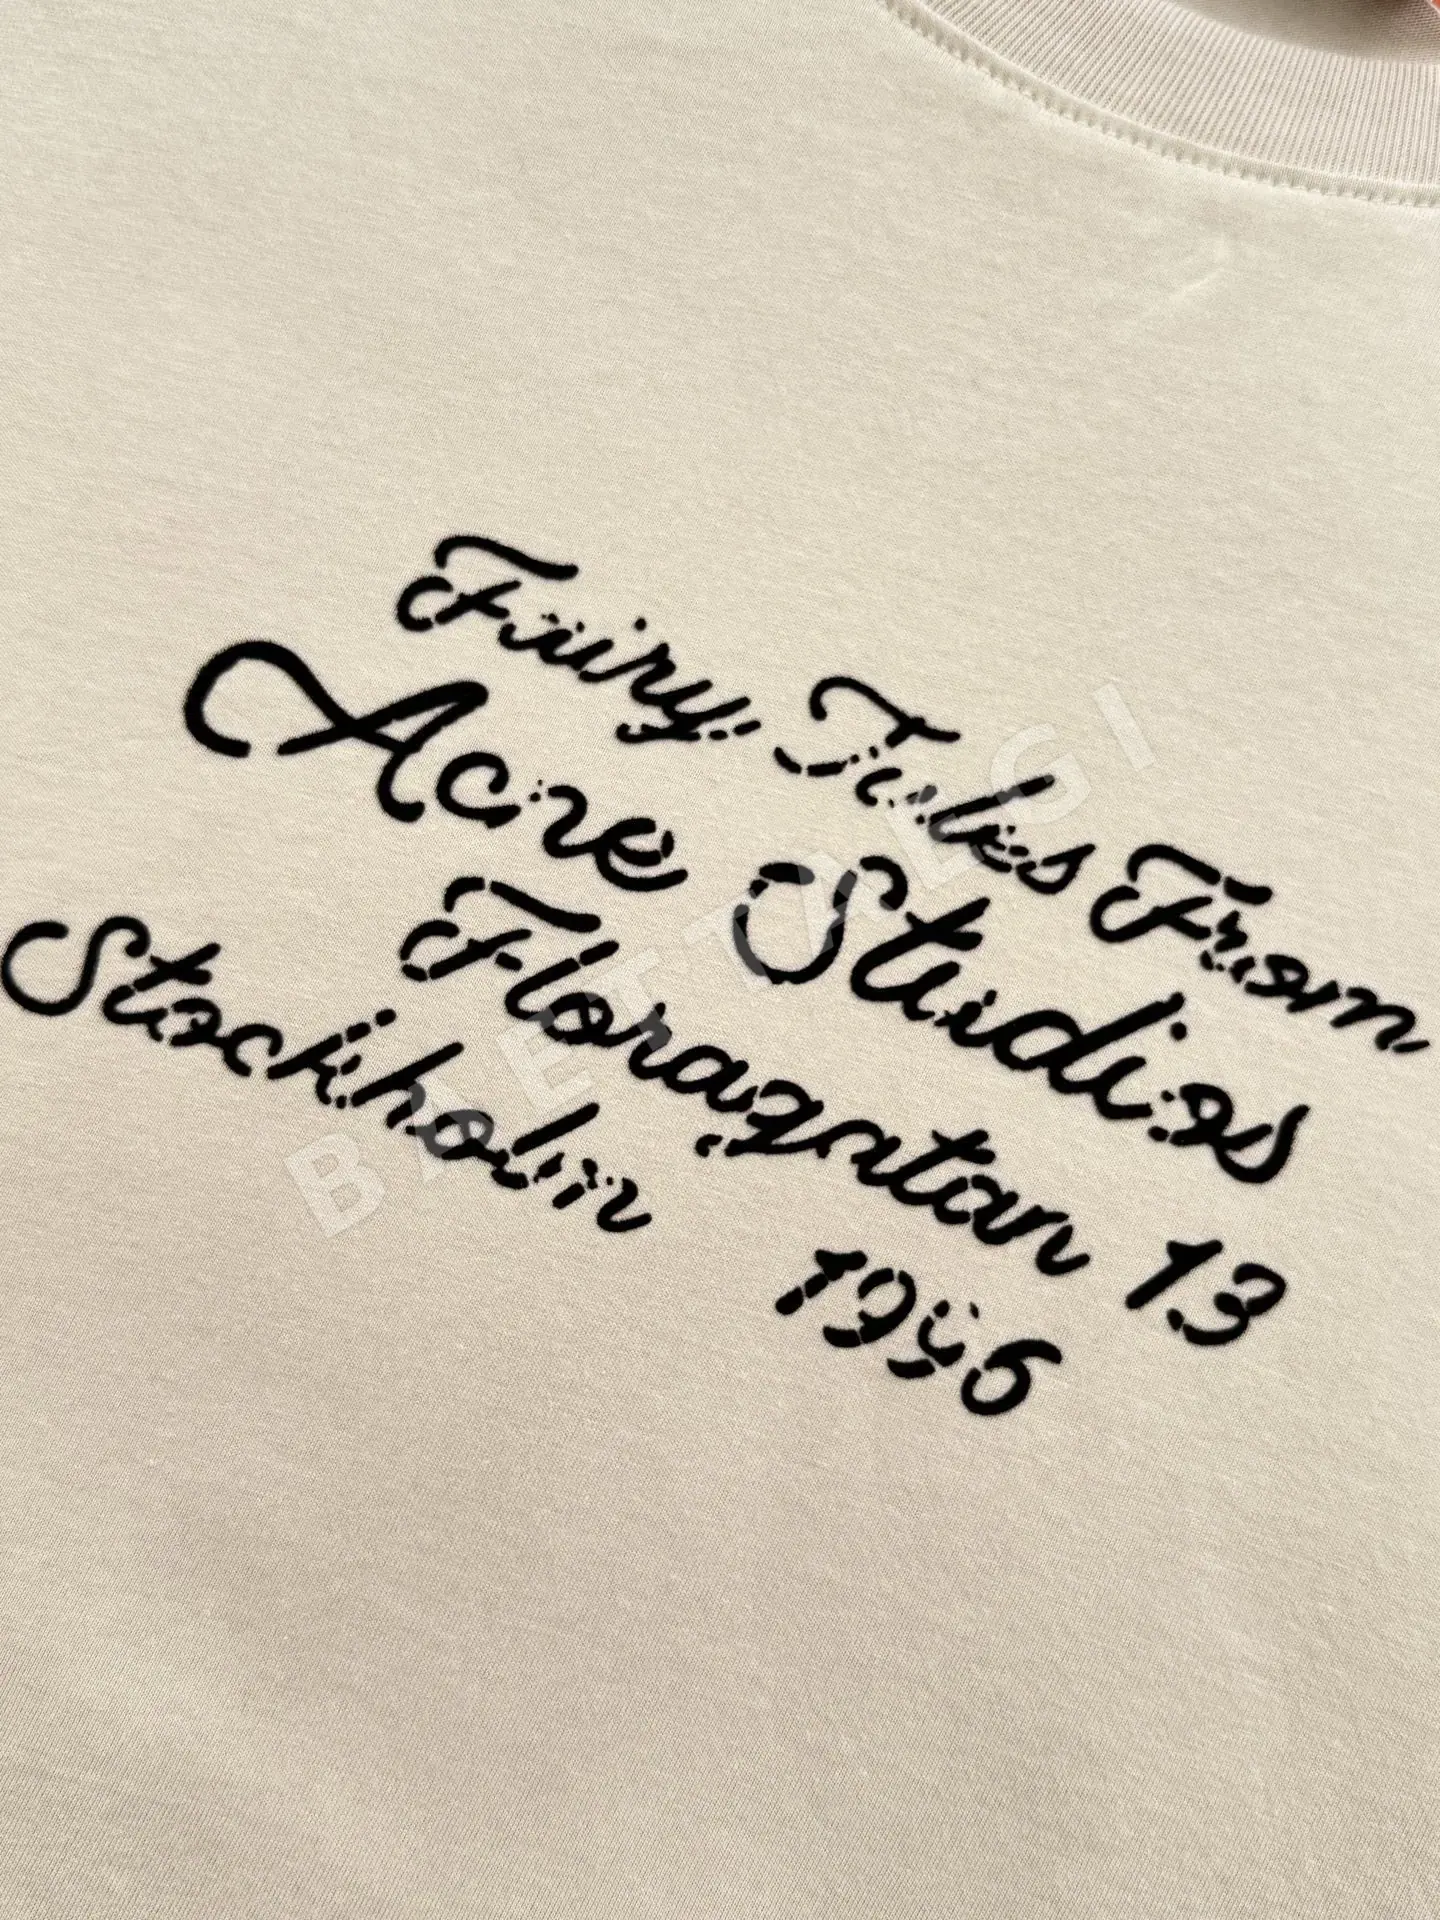 Fairy Tales From
Acne Studios
Floragatan 13
Stockholm 1996
BAETTALGI